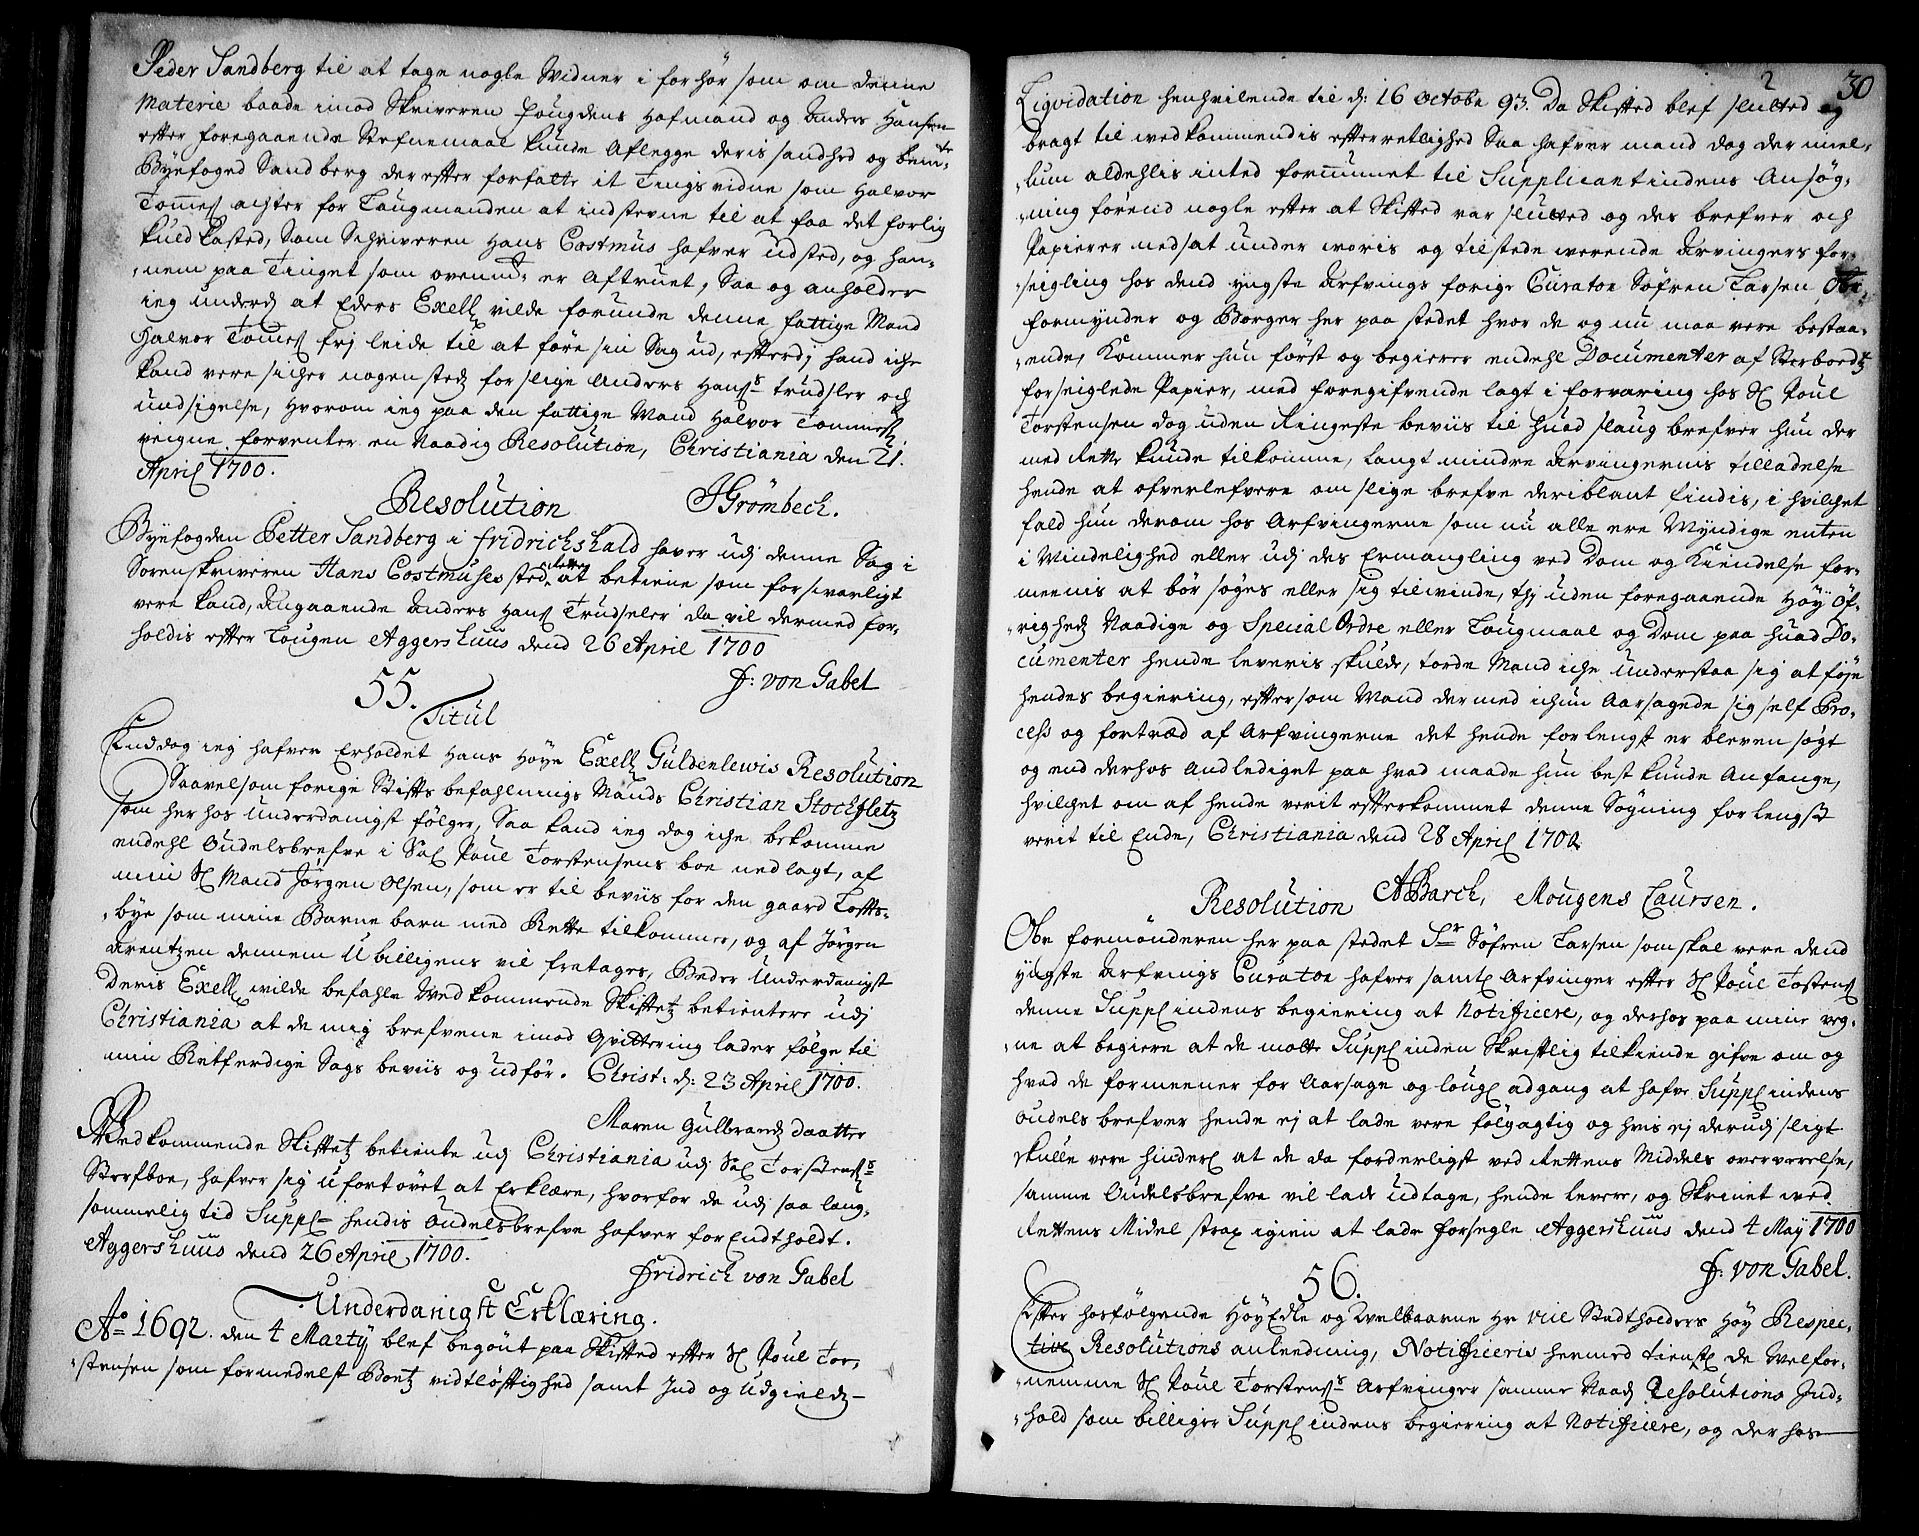 Peder Sandberg til at tage nogle Vidner i forhør som om denne
Materie baade imod Skriveren Fougdens Hafmand og Anders Hansen
efter foregaaende Stefnemaal kunde Aflegge deris sandhed og bem.te
Byefoged Sandberg der efter forfatte it Tingsvidne som Halvor
Tomeß agter for Laugmanden at indstevne til at faa det forlig
kuldkasted, Som Schriveren Hans Costmus hafver udsted, og han-
nem paa Tinget som ovenmt er Aftruet, Saa og anholder
ieg underd at Eders Excell vilde forunde denne fattige Mand
Halvor Tomeß frj leide til at føre sin Sag ud, efterdj hand iche
kand vere sicher nogensteds for slige Anders Hanß trudsler och
undsigelse, Hvorom ieg paa den fattige Mand Halvor Tommeß
veigne forventer en Naadig Resolution, Christiania den 21.
April 1700.
JGrömbech.
Resolution
Byefogden Petter Sandberg i Fridrichshald haver udj denne Sag i
Sorenskriveren Hans Costmuses sted retten at betiene som forsvarligt
vere kand, Angaaende Anders Hanß Trudseler da vil dermed for-
holdis efter Lougen Aggershuus dend 26 April 1700
F: von Gabel
55.
Titul
Enddog ieg hafver Erholdet Hans Høye Excell Guldenlewis Resolution
Saavelsom forige Stifts befahlnings Mands Christian Stochfletz
som her hos underdanigst følger, Saa kand ieg dog iche bekomme
endehl Oudelsbrefve i Sal Poul Torstensens boe nedlagt, af
min Sl Mand Jørgen Olsen, som er til beviis for den gaard Tofts-
bye som mine Barne barn med Rette tilkommer, og af Jørgen
Arentzen dennem Ubilligens vil fretages, Beder Underdanigst
Deris Excell wilde befahle Wedkommende Skiftetz betientere udj
Christiania at de mig brefvene imod Qvittering lader følge til
min Retferdige Sags beviis og udfør. Christ: d: 23 April 1700.
Maren Gulbrandz daatter
Wedkommende Skiftetz betiente udj Christiania udj Sal Torstenß
Sterfboe, hafver sig ufortøvet at Erklære, hvorfor de udj saa lang-
sommelig tid Suppl hendis Oudelsbrefve hafver forEndtholdt.
Aggershuus dend 26 April 1700.
Fridrich von Gabel
Underdanigst Erklæring.
Ao 1692. den 4 Martij blef begønt paa Skifted efter Sl Poul Tor-
stensen som formedelst Boetz vidtløftighed samt Ind og Udgieldz
30
Liqvidation henhvilende til d: 16 Octobr 93. Da Skifted blef slutted og
bragt til wedkommendis efterretlighed Saa hafver mand dog der miel-
lum aldehlis inted fornummet til Supplicantindens Ansøg-
ning førend nogle efter at Skifted var slutted og des brefver och
Papierer nedsat under woris og tilstede werende Arvingers for-
seigling hos dend yngste Arfvings forige Curator Søfren Larsen Obr
formynder og Borger her paa stedet hvor de og nu maa vere bestaa-
ende, Kommer hun først og begierer endehl Documenter af Sterboedz
forseiglede Papier, med foregifvende lagt i forvaring hos Sl Poul
Torstensen dog uden Ringeste beviis til huad slaug brefver hun der
med Rette kunde tilkomme, Langt mindre Arvingernis tilladelse
hende at ofverlefvere om slige brefve deriblant findis, i hvilchet
fald hun derom hos Arfvingerne som nu alle ere Myndige enten
i Mindelighed eller udj des Ermangling ved Dom og Kiendelse for-
meenis at bør søges eller sig tilvinde, thj uden foregaaende Høy Øf-
righedz Naadige og Special Ordre eller Lougmaal og Dom paa huad Do-
cumenter hende leveris skulde, torde Mand iche understaa sig at føje
hendes begiering, eftersom Mand dermed ichun Aarsagede sig self Pro-
cess og fortræd af Arfvingerne det hende forlengst er bleven søgt
og end derhos Andlediget paa hvad maade hun best kunde Anfange,
hvilchet om af hende verit efterkommet denne Søgning forlengst
verit til Ende, Christiania dend 28 April 1700.
ABarch, Mougens Laursen.
Resolution
Obr formönderen her paa stedet Sr Søfren Larsen som skal vere dend
yngste Arfvings Curator hafver samtl Arfvinger efter Sl Poul Tostenß
denne Supplindens begiering at Notificere, og derhos paa mine veg-
ne at begiere at de motte Supplinden Skriftlig tilkiende gifve om og
hvad de formeener for Aarsage og lougl adgang at hafve Supplindens
oudels brefver hende ej at lade vere følgagtig og hvis ej derudj sligt
skulle vere hinderl at de da forderligst ved Rettens Middels oververelse,
samme Oudelsbrefve vil lade udtage, hende levere, og Skrinet med
Rettens Midel strax igien at lade forsegle Aggershuus dend 4 May 1700
F: von Gabel.
56.
Efter hosfølgende HøyEdle og Welbaarne Hr Vice Stadtholders Høy Respec-
tive Resolutions anleedning, Notificeris hermed tienstl de Welfor-
nemme Sl Poul Torstenß Arfvinger samme Naadl Resolutions Ind-
hold som billiger Supplindens begiering at Notificere, og der hos